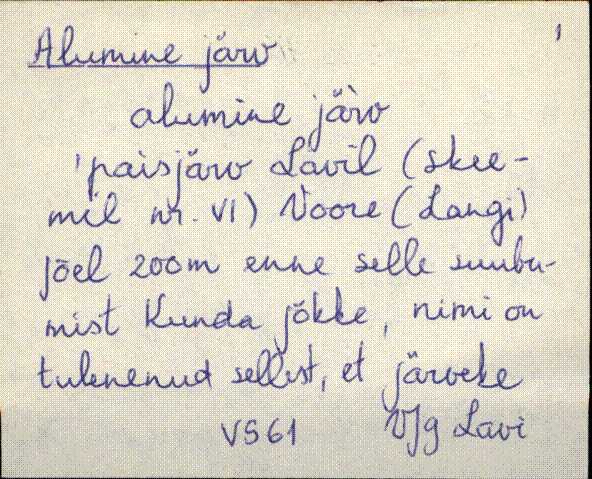 Alumine järv 1
alumine järv
'paisjärv Lavil (skee-
mil nr. VI) Voore (Langi)
jõel 200m enne selle suubu-
mist Kunda jõkke, nimi on
tulenenud sellest, et järveke
VS61 VJg Lavi